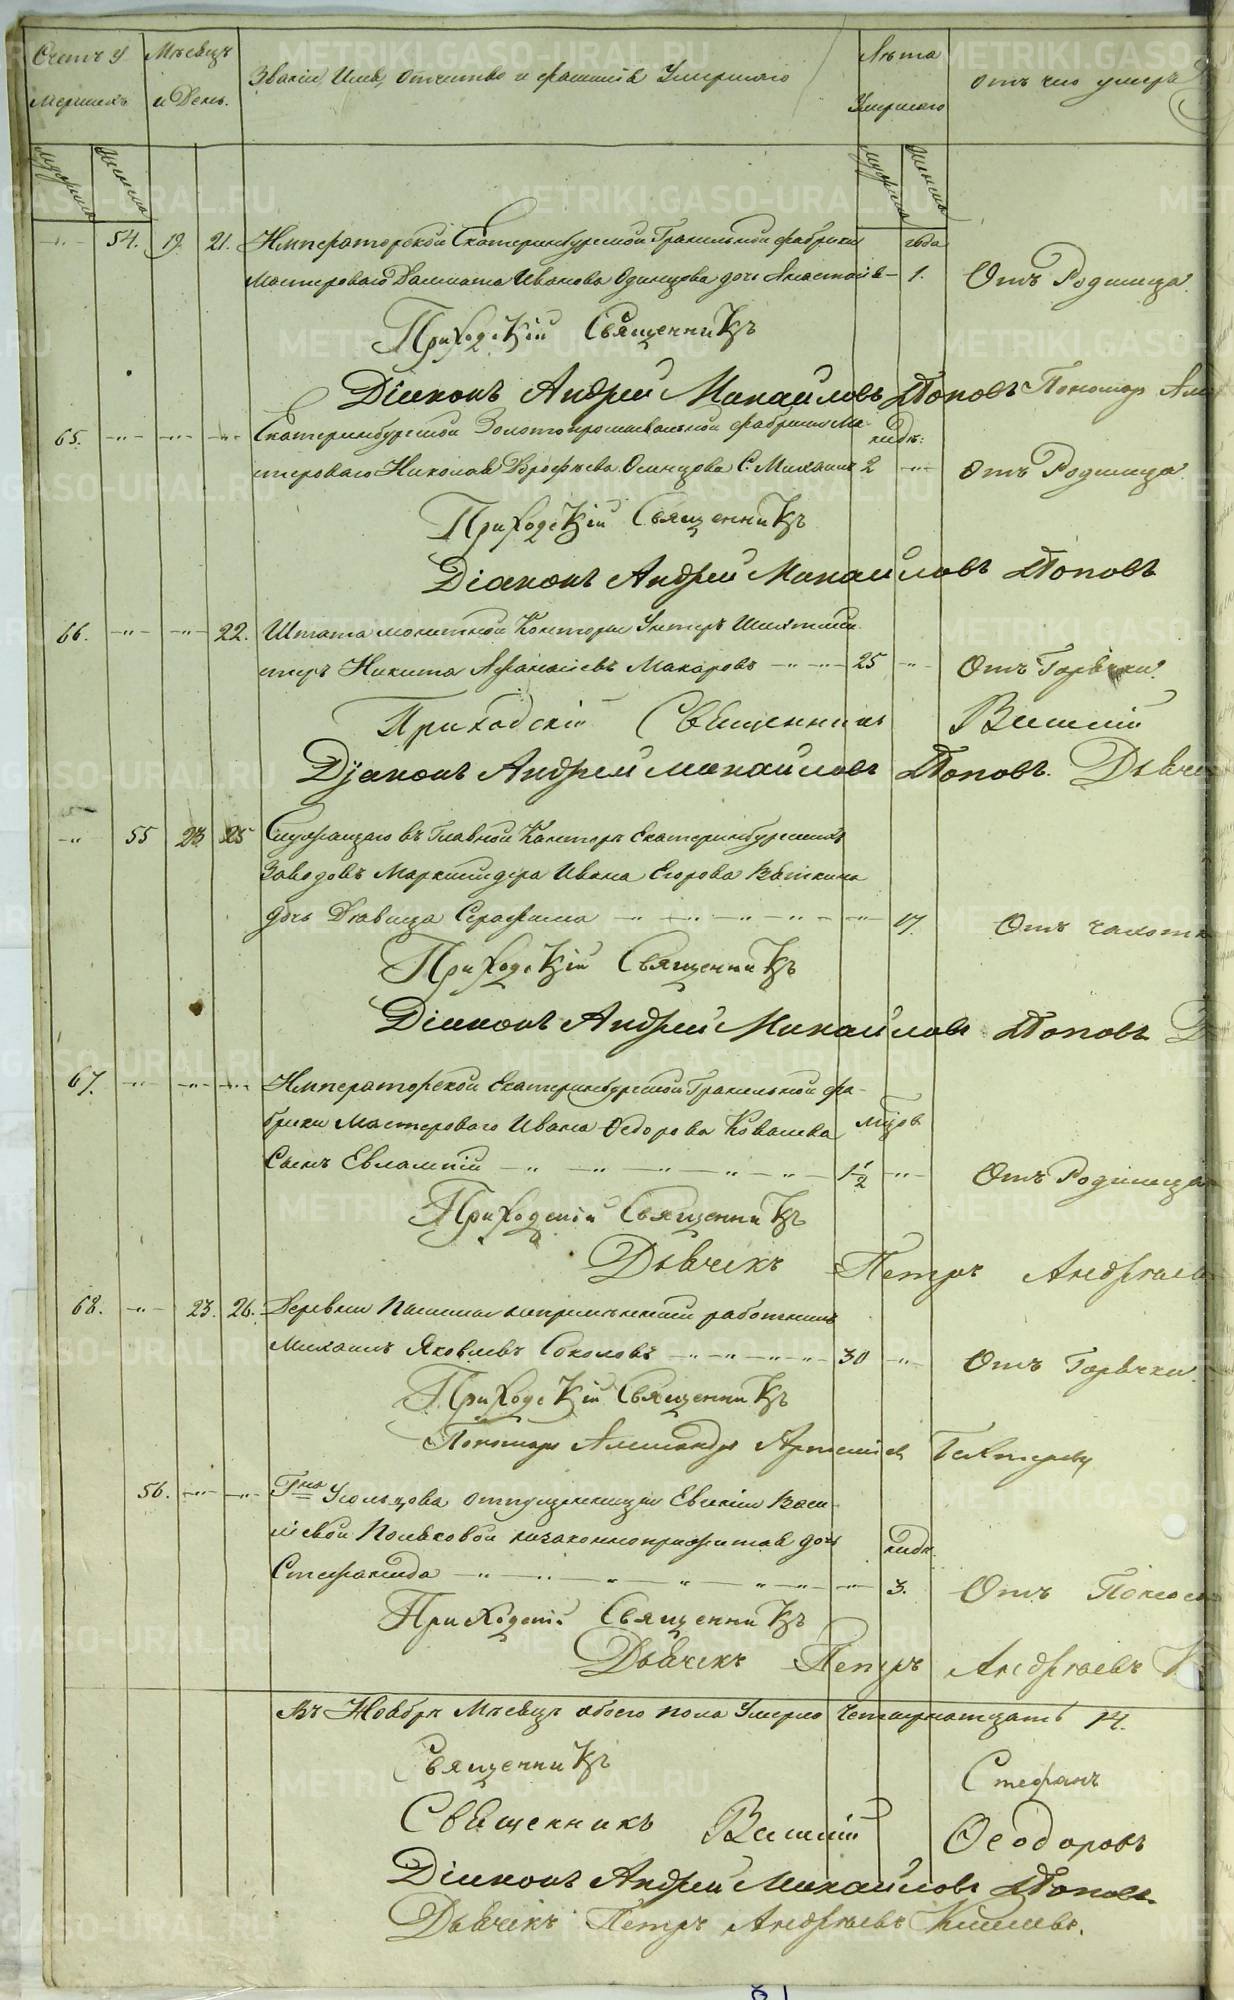 Счетъ У Мѣсяцъ Званіе, Имя, Отчество и фамилія Умершаго Лѣта Отъ чего умеръ
мершихъ и День. Умершаго
мужеска женска мужеска женска
54. 19. 21. Императорской Екатеринбургской Гранильной фабрики года
Мастероваго Далмата Иванова Одинцова дочь Анастасія 1. Отъ Родимца.
Приходскій Священникъ
Діаконъ Андрей Михайловъ Поповъ Пономарь Але
65. Екатеринбургской Золотопромывальной фабрики Ма- недѣ:
стероваго Николая Дорофѣева Осинцова С. Михаилъ 2 Отъ Родимца.
Приходскій Священникъ
Діаконъ Андрей Михайловъ Поповъ
66. 22. Штата монетной Конторы Унтеръ Шихтмей-
стеръ Никита Афанасьевъ Макаровъ 25 Отъ Горячки.
Приходскій Священникъ Василій
Діаконъ Андрей Михайловъ Поповъ. Дьяче
55 23 25 Служащаго въ Главной Канторѣ Екатеринбургскихъ
Заводовъ Маркшейдера Ивана Егорова Вяткина
дочь Дѣвица Серафима 17. Отъ чахотк
Приходскій Священникъ
Діаконъ Андрей Михайловъ Поповъ Д
67. Императорской Екатеринбургской Гранильной фа-
брики Мастероваго Ивана Федорова Ковалева мѣсяцов
Сынъ Евлампій 1 1/2 Отъ Родимца
Приходскій Священникъ
Дьячекъ Петръ Андреев
68. 23. 26. Деревни непремѣнный работникъ
Михаилъ Яковлевъ Соколовъ 30 Отъ Горячки.
Приходскій Священникъ
Пономарь Александръ Артемьев
56. Гна отпущенницы Евгеніи Васи-
льевой незаконноприжитая дочь недѣ.
Стефанида 3. Отъ Поносу
Приходскій Священникъ
Дьячекъ Петръ Андреевъ К
Въ Ноябрѣ Мѣсяцѣ обоего пола Умерло Четырнатцать 14.
Священникъ Стефанъ
Священникъ Василій Ѳеодоровъ
Діаконъ Андрей Михайловъ Поповъ.
Дьячекъ Петръ Андреевъ Киселевъ.
METRIKI.GASO-URAL.RU